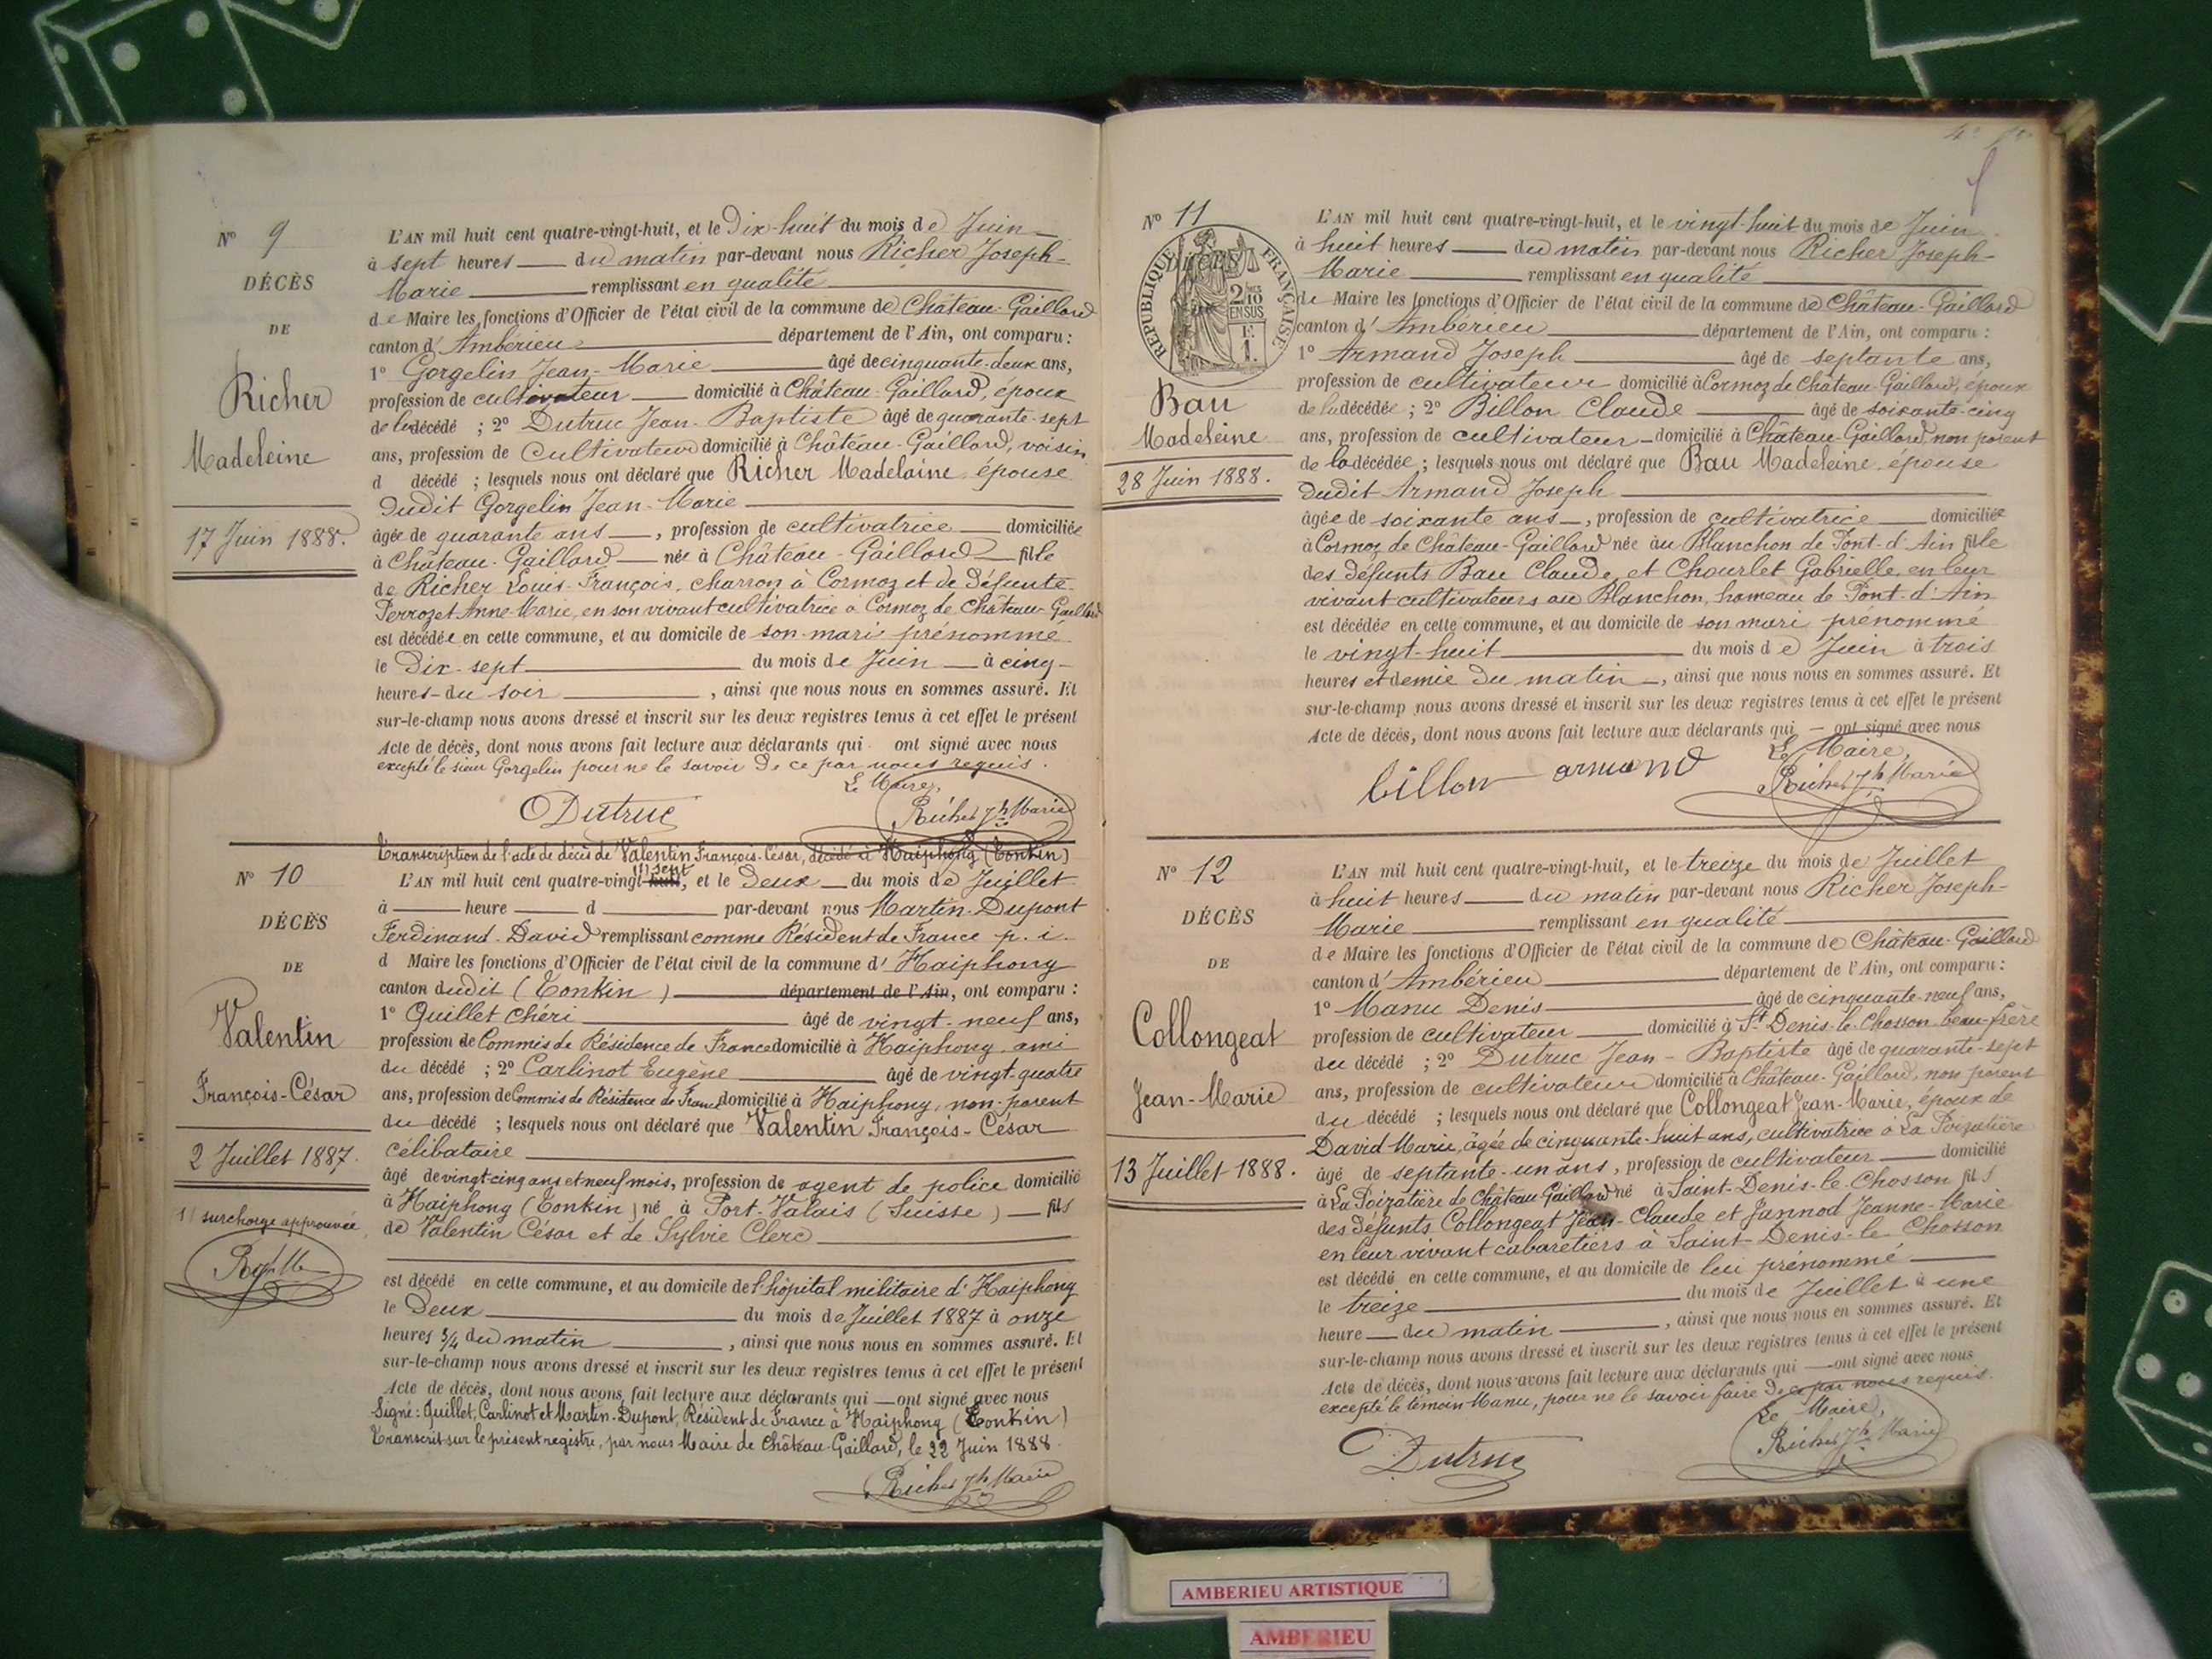 N° 9
DÉCÈS
DE
Richer
Madeleine
17 Juin 1888.
L'AN mil huit cent quatre-vingt-huit, et le Dix-huit du mois de Juin
à sept heures du matin par-devant nous Richer Joseph-
Marie remplissant en qualité
de Maire les fonctions d'Officier de l'état civil de la commune de Château-Gaillard
canton d'Ambérieu département de l'Ain, ont comparu :
1° Gorgelin Jean-Marie âgé de cinquante-deux ans,
profession de cultivateur domicilié à Château-Gaillard, époux
de la décédé ; 2° Dutruc Jean-Baptiste âgé de quarante-sept
ans, profession de Cultivateur domicilié à Château-Gaillard, voisin
d décédé ; lesquels nous ont déclaré que Richer Madelaine, épouse
dudit Gorgelin Jean-Marie
âgée de quarante ans, profession de cultivatrice domiciliée
à Château-Gaillard née à Château-Gaillard fille
de Richer Louis-François, charron à Cormoz et de défunte
Perrozet Anne-Marie, en son vivant cultivatrice à Cormoz de Château-Gaillard
est décédée en cette commune, et au domicile de son mari prénommé
le Dix-sept du mois de Juin à cinq
heures du soir, ainsi que nous nous en sommes assuré. Et
sur-le-champ nous avons dressé et inscrit sur les deux registres tenus à cet effet le présent
Acte de décès, dont nous avons fait lecture aux déclarants qui ont signé avec nous
excepté le sieur Gorgelin pour ne le savoir de ce par nous requis.
Le Maire,
Dutruc Richer Jh Marie
N° 10
DÉCÈS
DE
Valentin
François-César
2 Juillet 1887.
1) surcharge approuvée
Transcription de l'acte de décès de Valentin François-César, décédé à Haiphong (Tonkin)
(1) sept
L'AN mil huit cent quatre-vingt-huit, et le Deux du mois de Juillet
à heure d par-devant nous Martin-Dupont
Ferdinand-David remplissant comme Résident de France p. i.
d Maire les fonctions d'Officier de l'état civil de la commune d'Haiphong
canton dudit (Tonkin) département de l'Ain, ont comparu :
1° Quillet Chéri âgé de vingt-neuf ans,
profession de Commis de Résidence de France domicilié à Haiphong, ami
du décédé ; 2° Carlinot Eugène âgé de vingt quatre
ans, profession de Commis de Résidence de France domicilié à Haiphong, non-parent
du décédé ; lesquels nous ont déclaré que Valentin François-César
célibataire
âgé de vingt-cinq ans et neuf mois, profession de agent de police domicilié
à Haiphong (Tonkin) né à Port-Valais (Suisse) fils
de Valentin César et de Sylvie Clerc
est décédé en cette commune, et au domicile de l'hôpital militaire d'Haiphong
le Deux du mois de Juillet 1887 à onze
heures 3/4 du matin, ainsi que nous nous en sommes assuré. Et
sur-le-champ nous avons dressé et inscrit sur les deux registres tenus à cet effet le présent
Acte de décès, dont nous avons fait lecture aux déclarants qui ont signé avec nous
Signé : Quillet, Carlinot et Martin-Dupont, Résident de France à Haiphong (Tonkin)
Transcrit sur le présent registre, par nous Maire de Château-Gaillard, le 22 Juin 1888.
Richer Jh Marie
N° 11
RÉPUBLIQUE FRANÇAISE
DÉCÈS
2/10 EN SUS
1 F.
Bau
Madeleine
28 Juin 1888.
L'AN mil huit cent quatre-vingt-huit, et le vingt-huit du mois de Juin
à huit heures du matin par-devant nous Richer Joseph-
Marie remplissant en qualité
de Maire les fonctions d'Officier de l'état civil de la commune de Château-Gaillard
canton d'Ambérieu département de l'Ain, ont comparu :
1° Armand Joseph âgé de septante ans,
profession de cultivateur domicilié à Cormoz de Château-Gaillard, époux
de la décédée ; 2° Billon Claude âgé de soixante-cinq
ans, profession de cultivateur domicilié à Château-Gaillard non parent
de la décédée ; lesquels nous ont déclaré que Bau Madeleine, épouse
dudit Armand Joseph
âgée de soixante ans, profession de cultivatrice domiciliée
à Cormoz de Château-Gaillard née au Blanchon de Pont-d'Ain fille
des défunts Bau Claude et Chourlet Gabrielle, en leur
vivant cultivateurs au Blanchon, hameau de Pont-d'Ain
est décédée en cette commune, et au domicile de son mari prénommé
le vingt-huit du mois de Juin à trois
heures et demie du matin, ainsi que nous nous en sommes assuré. Et
sur-le-champ nous avons dressé et inscrit sur les deux registres tenus à cet effet le présent
Acte de décès, dont nous avons fait lecture aux déclarants qui ont signé avec nous
Le Maire,
billon armand Richer Jh Marie
N° 12
DÉCÈS
DE
Collongeat
Jean-Marie
13 Juillet 1888.
L'AN mil huit cent quatre-vingt-huit, et le treize du mois de Juillet
à huit heures du matin par-devant nous Richer Joseph-
Marie remplissant en qualité
de Maire les fonctions d'Officier de l'état civil de la commune de Château-Gaillard
canton d'Ambérieu département de l'Ain, ont comparu :
1° Manu Denis âgé de cinquante-neuf ans,
profession de cultivateur domicilié à St Denis-le-Chosson beau-frère
du décédé ; 2° Dutruc Jean-Baptiste âgé de quarante-sept
ans, profession de cultivateur domicilié à Château-Gaillard, non parent
du décédé ; lesquels nous ont déclaré que Collongeat Jean-Marie, époux de
David Marie, âgée de cinquante-huit ans, cultivatrice à La Poizatière
âgé de septante-un ans, profession de cultivateur domicilié
à La Poizatière de Château-Gaillard né à Saint-Denis-le-Chosson fils
des défunts Collongeat Jean-Claude et Jannod Jeanne-Marie
en leur vivant cabaretiers à Saint-Denis-le-Chosson
est décédé en cette commune, et au domicile de lui prénommé
le treize du mois de Juillet à une
heure du matin, ainsi que nous nous en sommes assuré. Et
sur-le-champ nous avons dressé et inscrit sur les deux registres tenus à cet effet le présent
Acte de décès, dont nous avons fait lecture aux déclarants qui ont signé avec nous
excepté le témoin Manu, pour ne le savoir faire de ce par nous requis.
Le Maire,
Dutruc Richer Jh Marie
AMBERIEU ARTISTIQUE
AMBERIEU